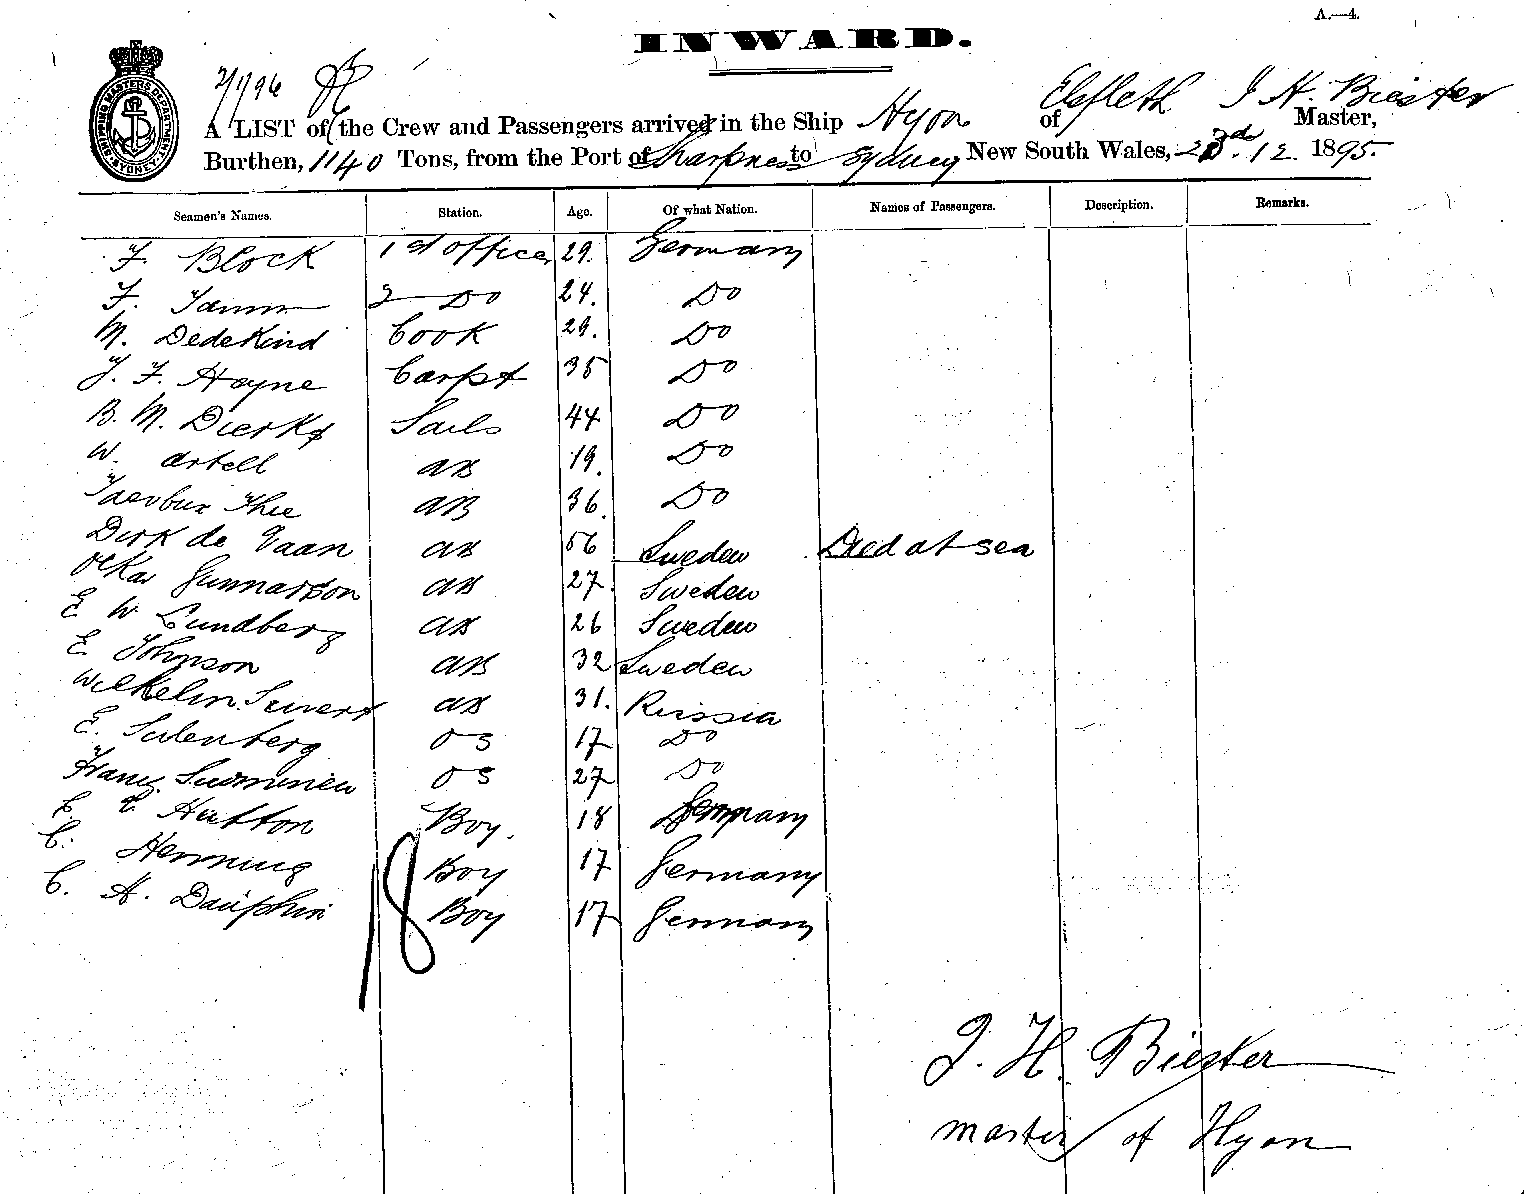 A.—4.
INWARD.
2/1/96
A LIST of the Crew and Passengers arrived in the Ship Hyon of Elsfleth J H. Biester Master,
Burthen, 1140 Tons, from the Port of Sharpness to Sydney New South Wales, 23rd. 12. 1895.
Seamen's Names. Station. Age. Of what Nation. Names of Passengers. Description. Remarks.
F. Block 1st officer 29. Germany
F. Tamm 2 Do 24. Do
M. Dedekind Cook 29. Do
J. F. Hayne Carpt 35 Do
B. M. Dierks Sails 44 Do
W. artell AB 19. Do
Thee AB 36. Do
Dirk de Vaan AB 56 Sweden Died at sea
Oskar Gunnarson AB 27. Sweden
E W Lundberg AB 26 Sweden
E. Johnson AB 32 Sweden
Wilhelm Sievert AB 31. Russia
E. Sulenberg OS 17 Do
Franz Suominen OS 27 Do
C. E Hutton Boy. 18 Germany
C. Henning Boy 17 Germany
C. A. Dauphin Boy 17 Germany
18
J. H. Biester
master of Hyon